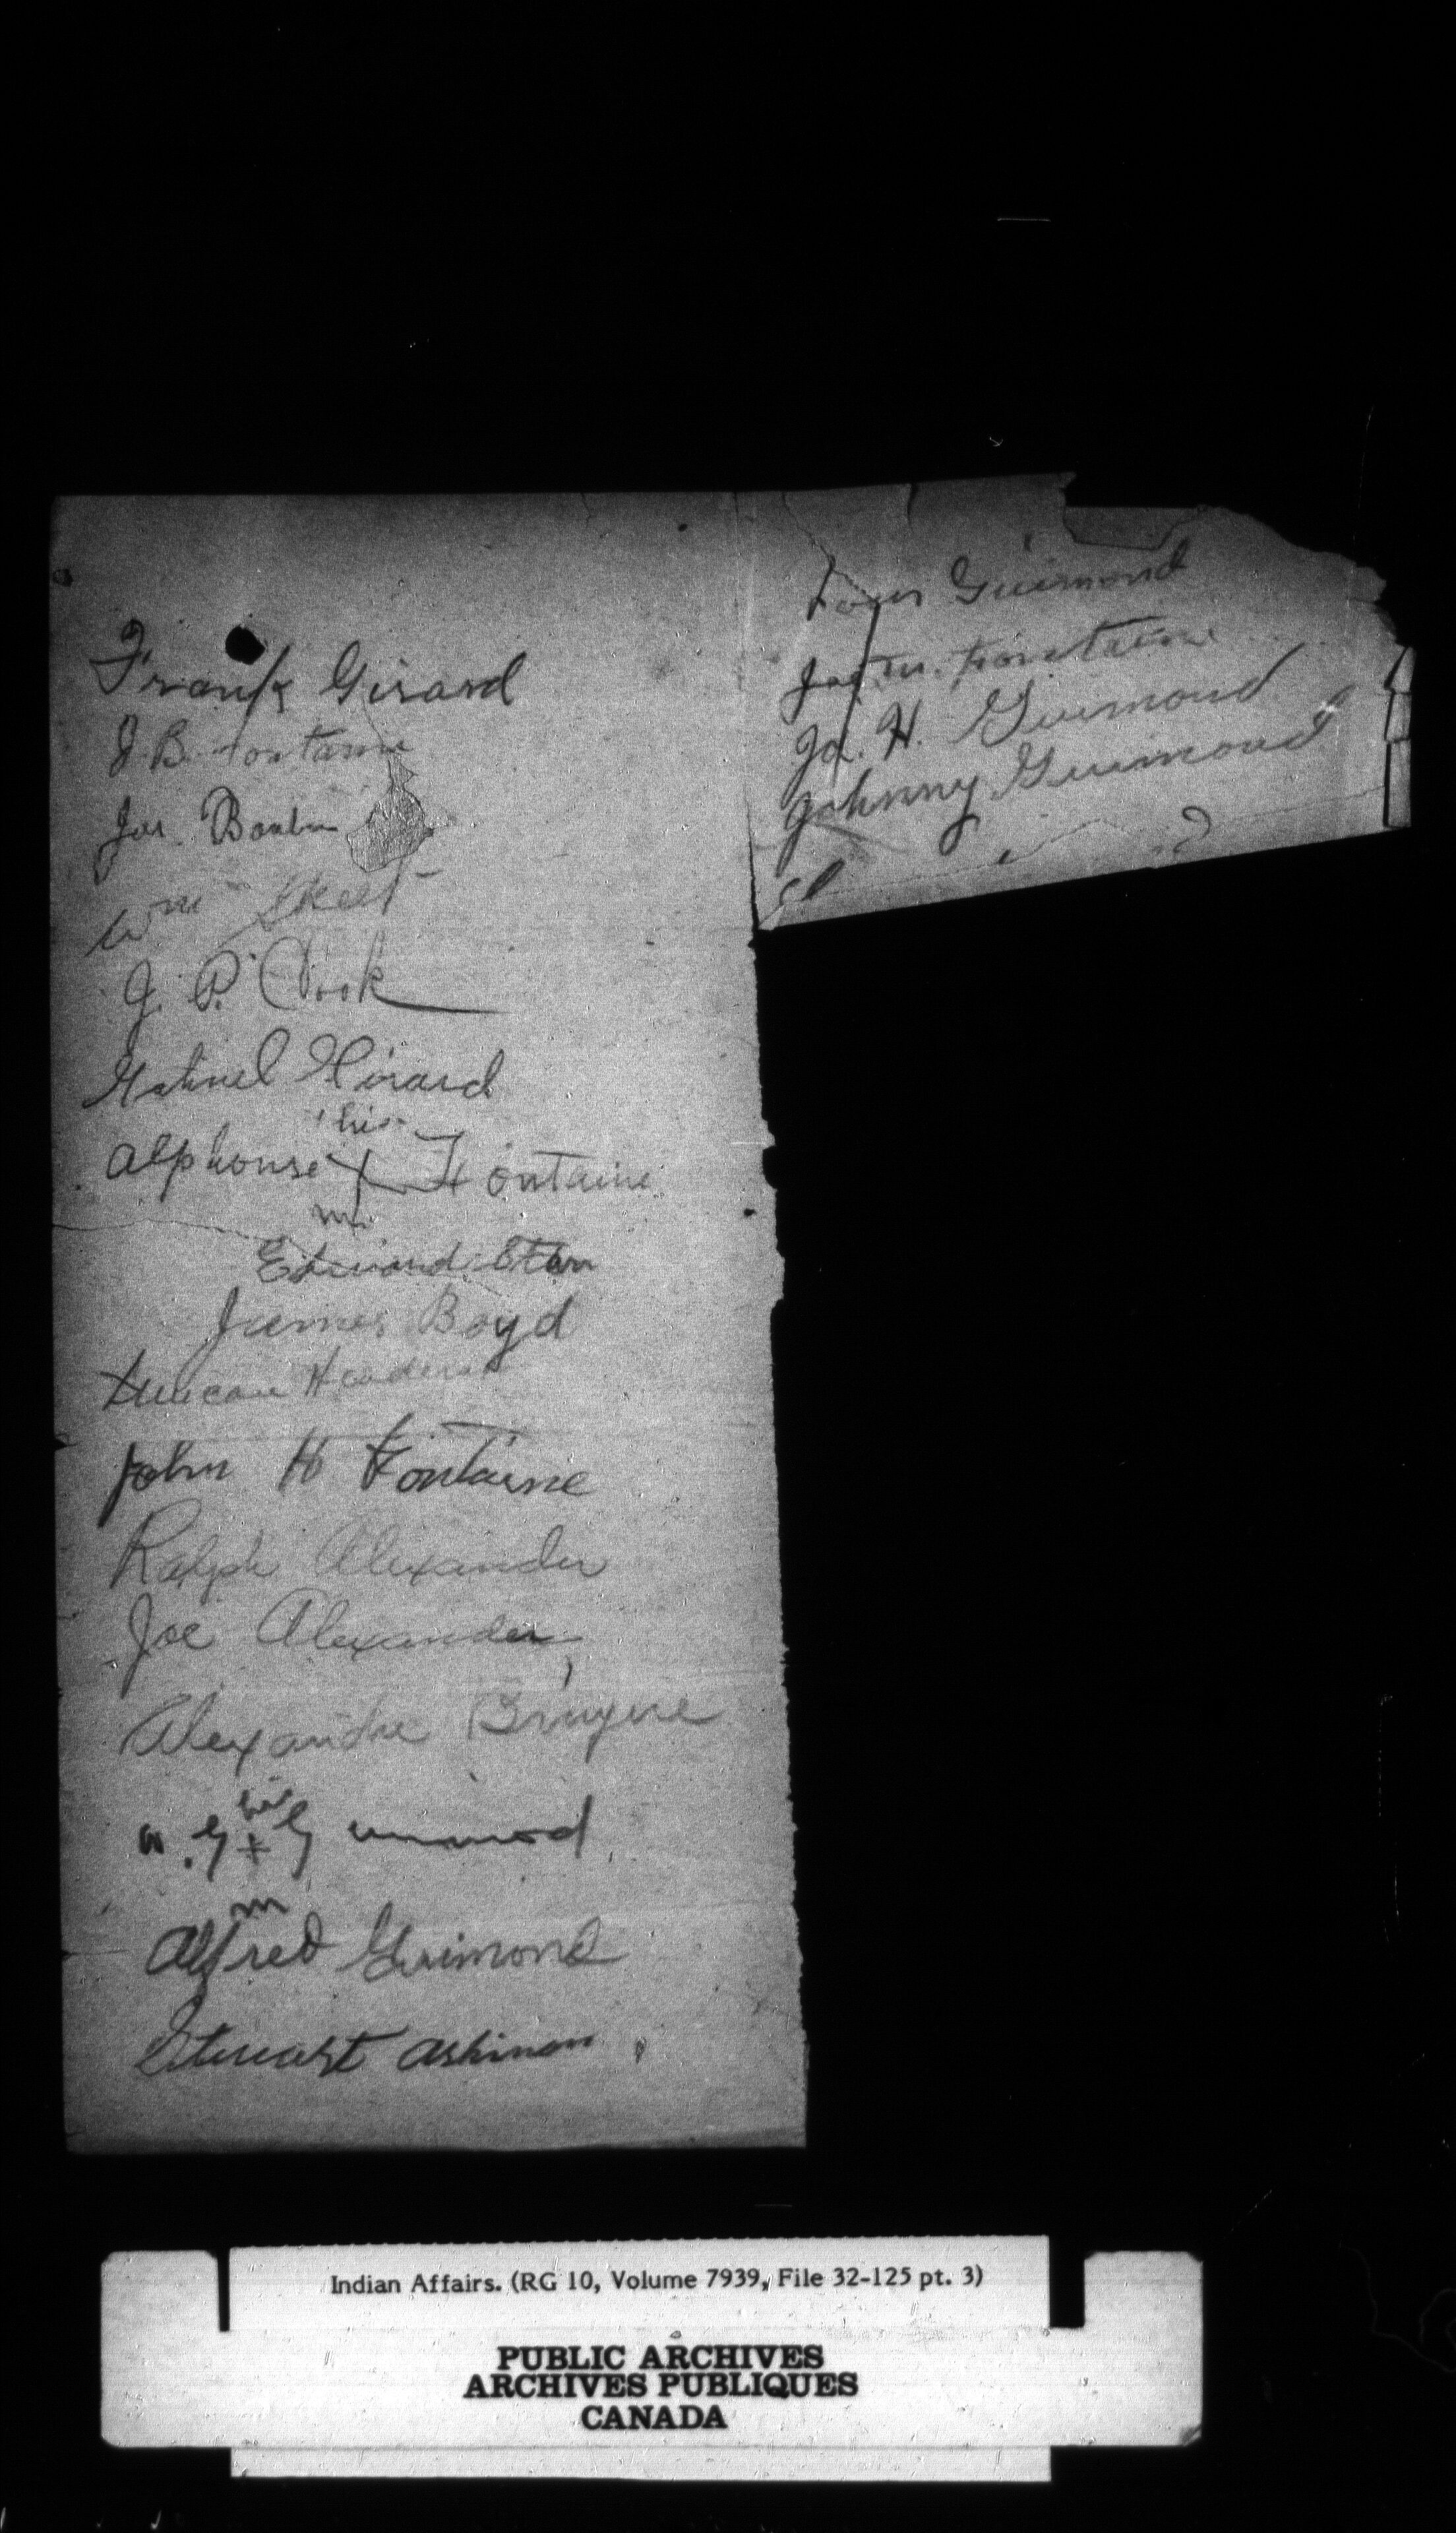 Frank Girard
J. B. Fontaine
Jos
Wm
J. P. Cook
Gabriel Girard
his
Alphonse X Fontaine
m
Edward Starr
James Boyd
Duncan
John H Fontaine
Ralph Alexander
Joe Alexander
Alexandre Bruyere
his
W. G + Guimond
m
Alfred Guimond
Stewart Askinon
Louis Guimond
Joe M. Fontaine
Jo. H. Guimond
Johnny Guimond
Indian Affairs. (RG 10, Volume 7939, File 32-125 pt. 3)
PUBLIC ARCHIVES
ARCHIVES PUBLIQUES
CANADA